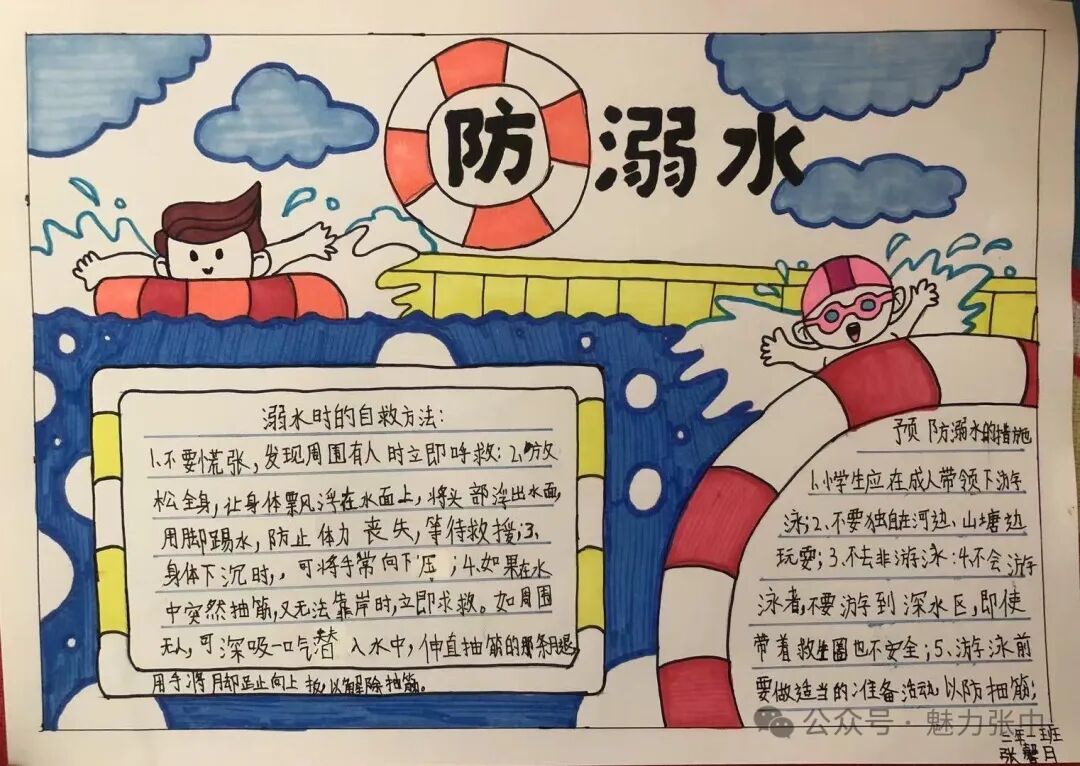 防溺水
溺水时的自救方法:
1.不要慌张,发现周围有人时立即呼救:2.放
松全身,让身体飘浮在水面上,将头部浮出水面,
用脚踢水,防止体力丧失,等待救援;3、
身体下沉时,,可将手常向下压;4.如果在水
中突然抽筋,又无法靠岸时,立即求救。如周围
无人,可深吸一口气替入水中,伸直抽筋的那条腿,
用手将脚趾向上扳,以解除抽筋。
预防溺水的措施
1.小学生应在成人带领下游
泳;2、不要独自在河边、山塘边
玩耍;3、不去非游泳:4.不会游
泳者,不要游到深水区,即使
带着救生圈也不安全;5、游泳前
要做适当的准备活动以防抽筋;
公众号·魅力张中
二年一班
张馨月